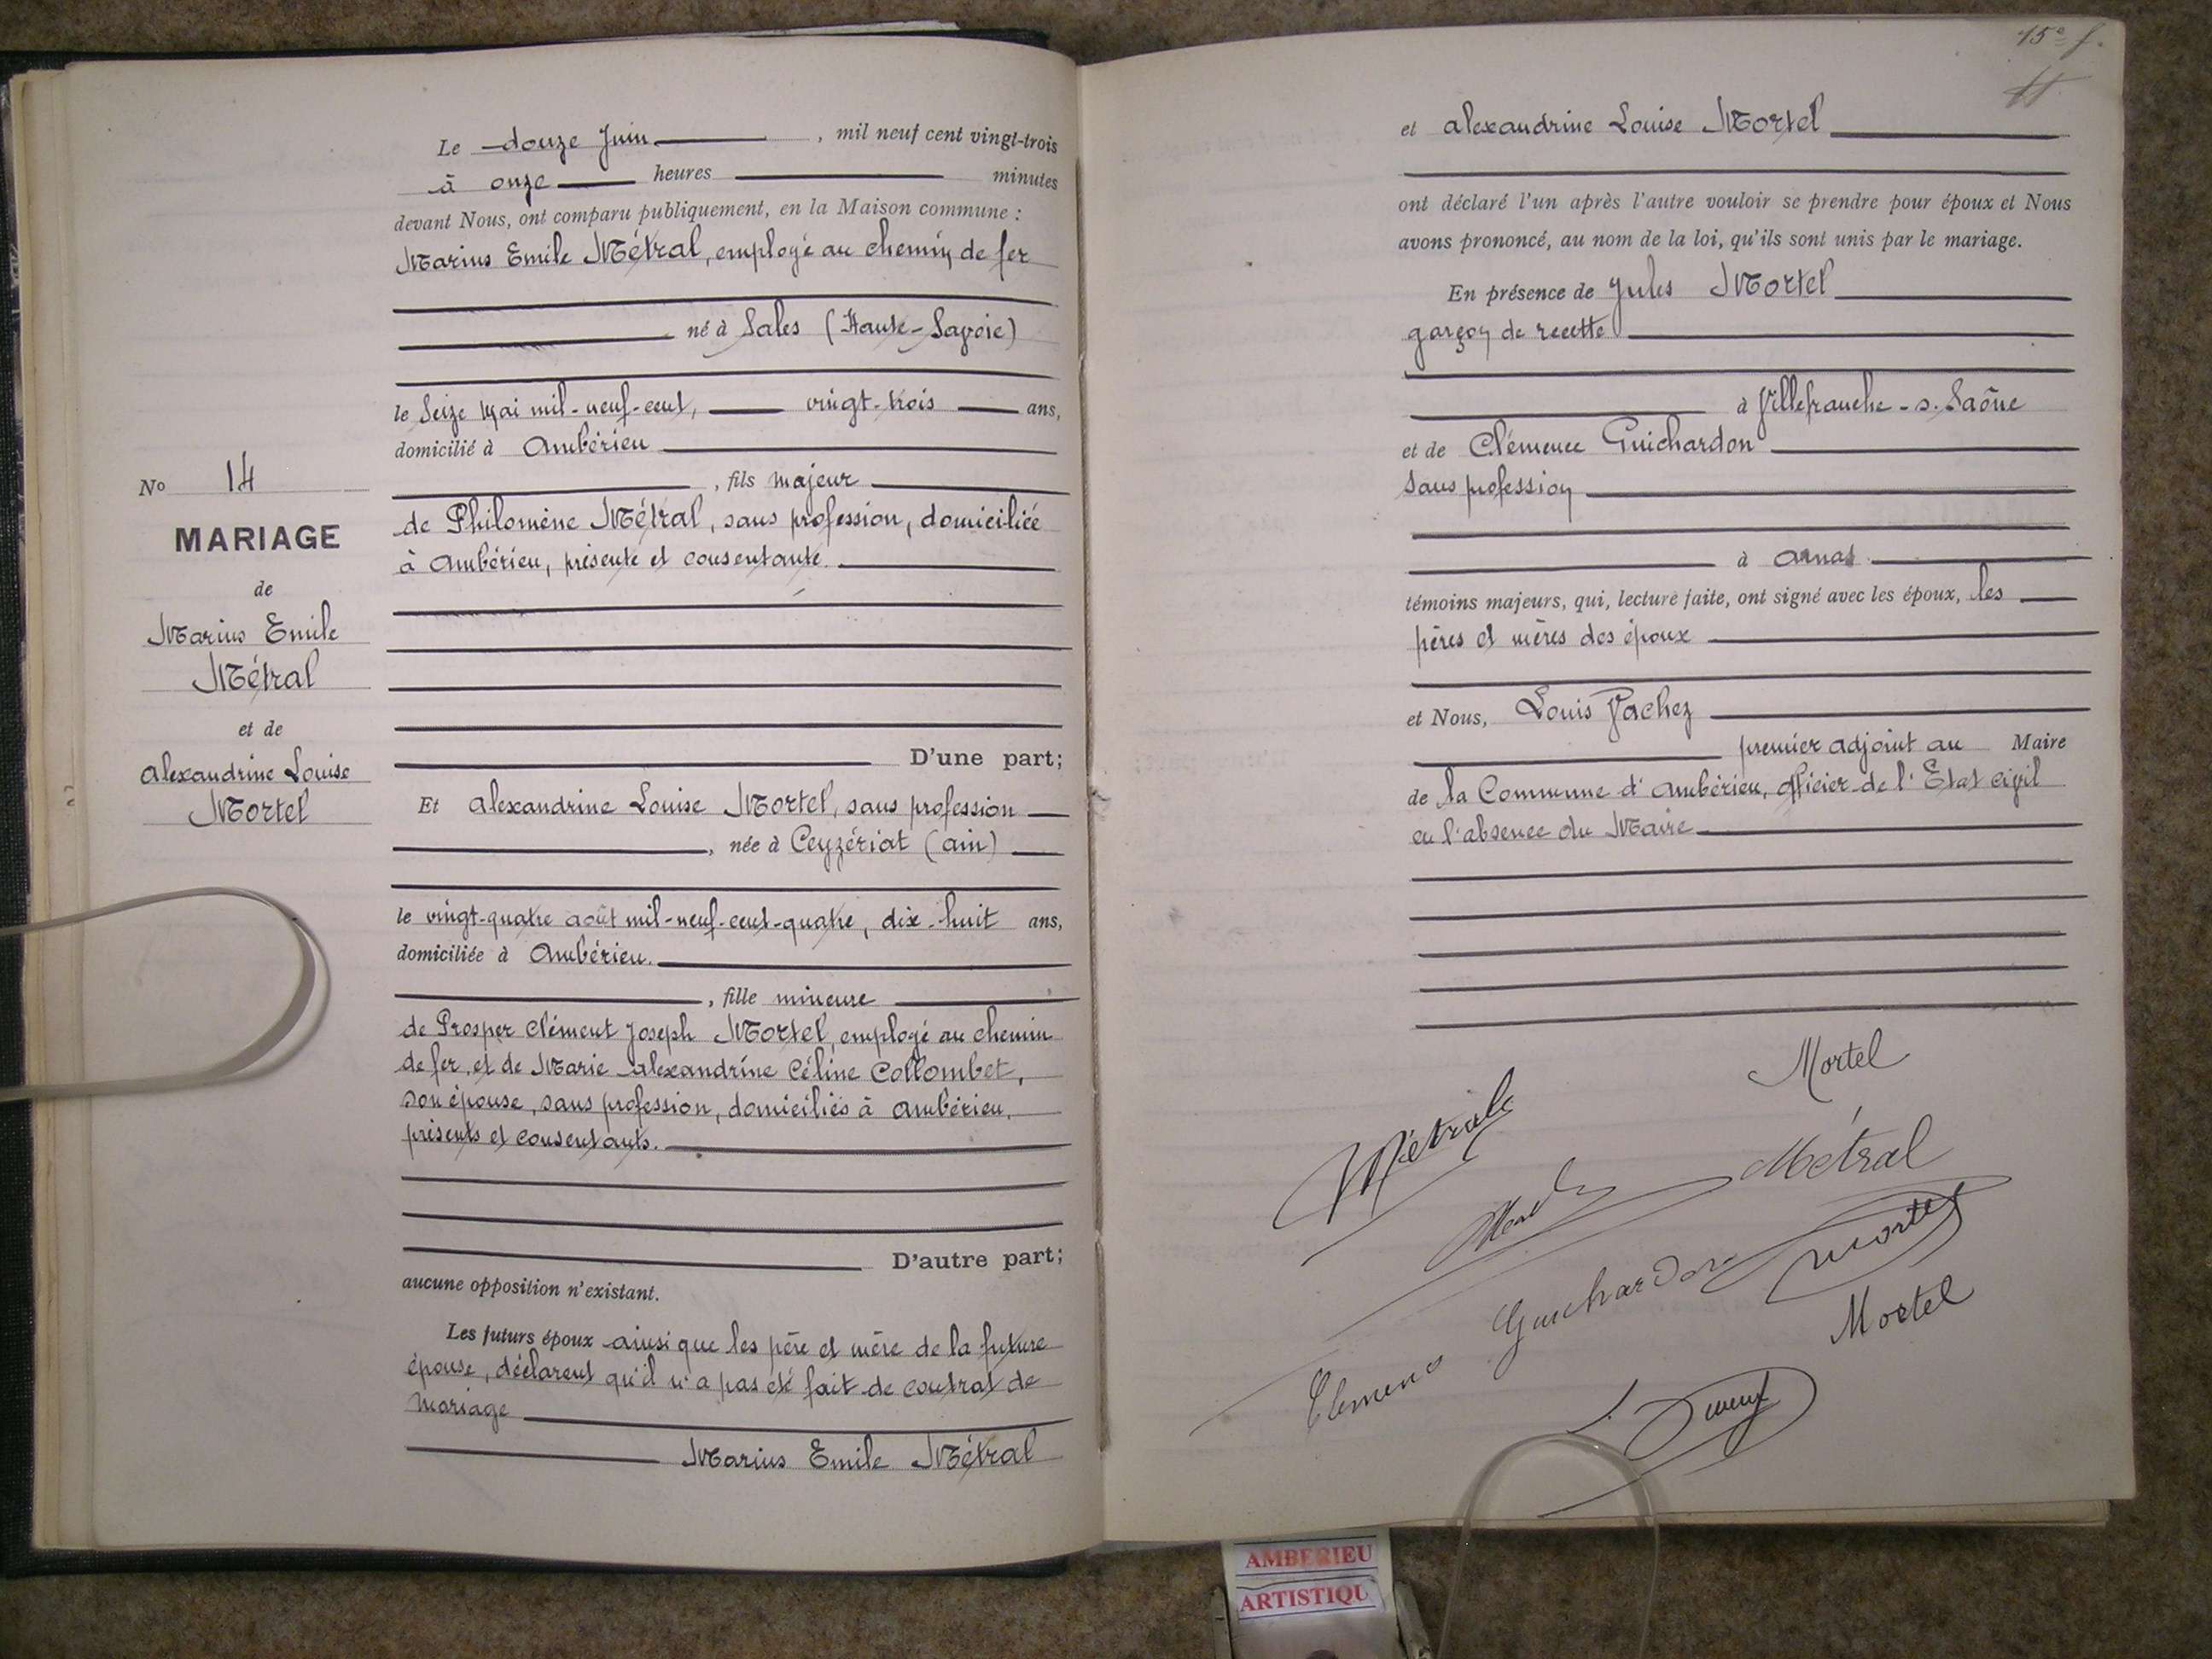 Le douze Juin, mil neuf cent vingt-trois
à onze heures minutes
devant Nous, ont comparu publiquement, en la Maison commune :
Marius Emile Métral, employé au chemin de fer
né à Sales (Haute-Savoie)
le Seize Mai mil-neuf-cent, vingt-trois ans,
domicilié à Ambérieu
, fils majeur
de Philomène Métral, sans profession, domiciliée
à Ambérieu, présente et consentante.
D'une part;
Et Alexandrine Louise Mortel, sans profession
, née à Ceyzériat (Ain)
le vingt-quatre août mil-neuf-cent-quatre, dix-huit ans,
domiciliée à Ambérieu.
, fille mineure
de Prosper Clément Joseph Mortel, employé au chemin
de fer, et de Marie Alexandrine Céline Collombet,
son épouse, sans profession, domiciliés à Ambérieu,
présents et consentants.
D'autre part;
aucune opposition n'existant.
Les futurs époux ainsi que les père et mère de la future
épouse, déclarent qu'il n'a pas été fait de contrat de
mariage
Marius Emile Métral
No 14
MARIAGE
de
Marius Emile
Métral
et de
Alexandrine Louise
Mortel
15e f.
et Alexandrine Louise Mortel
ont déclaré l'un après l'autre vouloir se prendre pour époux et Nous
avons prononcé, au nom de la loi, qu'ils sont unis par le mariage.
En présence de Jules Mortel
garçon de recette
à Villefranche-s.Saône
et de Clémence Guichardon
sans profession
à Arnas
témoins majeurs, qui, lecture faite, ont signé avec les époux, les
pères et mères des époux
et Nous, Louis Vachez
premier adjoint au Maire
de la Commune d'Ambérieu, officier de l'Etat civil
en l'absence du Maire
Mortel
Métral
Métral
Mortel
Clemence Guichardon
Mortel
AMBERIEU
ARTISTIQU